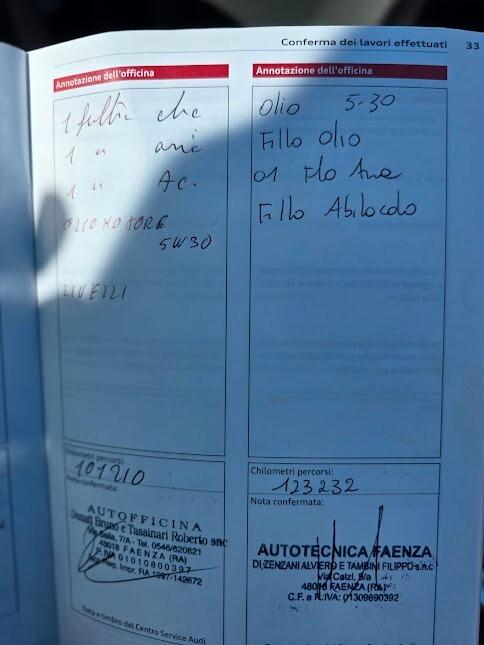 Conferma dei lavori effettuati 33
Annotazione dell'officina
1 filtro
1 "
1 " AC.
OLIO MOTORE
5W30
LIVELLI
Chilometri percorsi:
101210
Nota confermata:
AUTOFFICINA
Donati Bruno e Tassinari Roberto snc
7/A - Tel. 0546/620821
48018 FAENZA (RA)
P. IVA 01010800397
Reg. Impr. RA 1997-142672
Data e timbro del Centro Service Audi
Annotazione dell'officina
Olio 5-30
Fillo Olio
01 Flo
Fillo Abitacolo
Chilometri percorsi:
123232
Nota confermata:
AUTOTECNICA FAENZA
DI ZENZANI ALVIERO E TAMBINI FILIPPO s.n.c
Via Calzi, 9/a
48018 FAENZA (RA)
C.F. e P.IVA: 01309690392